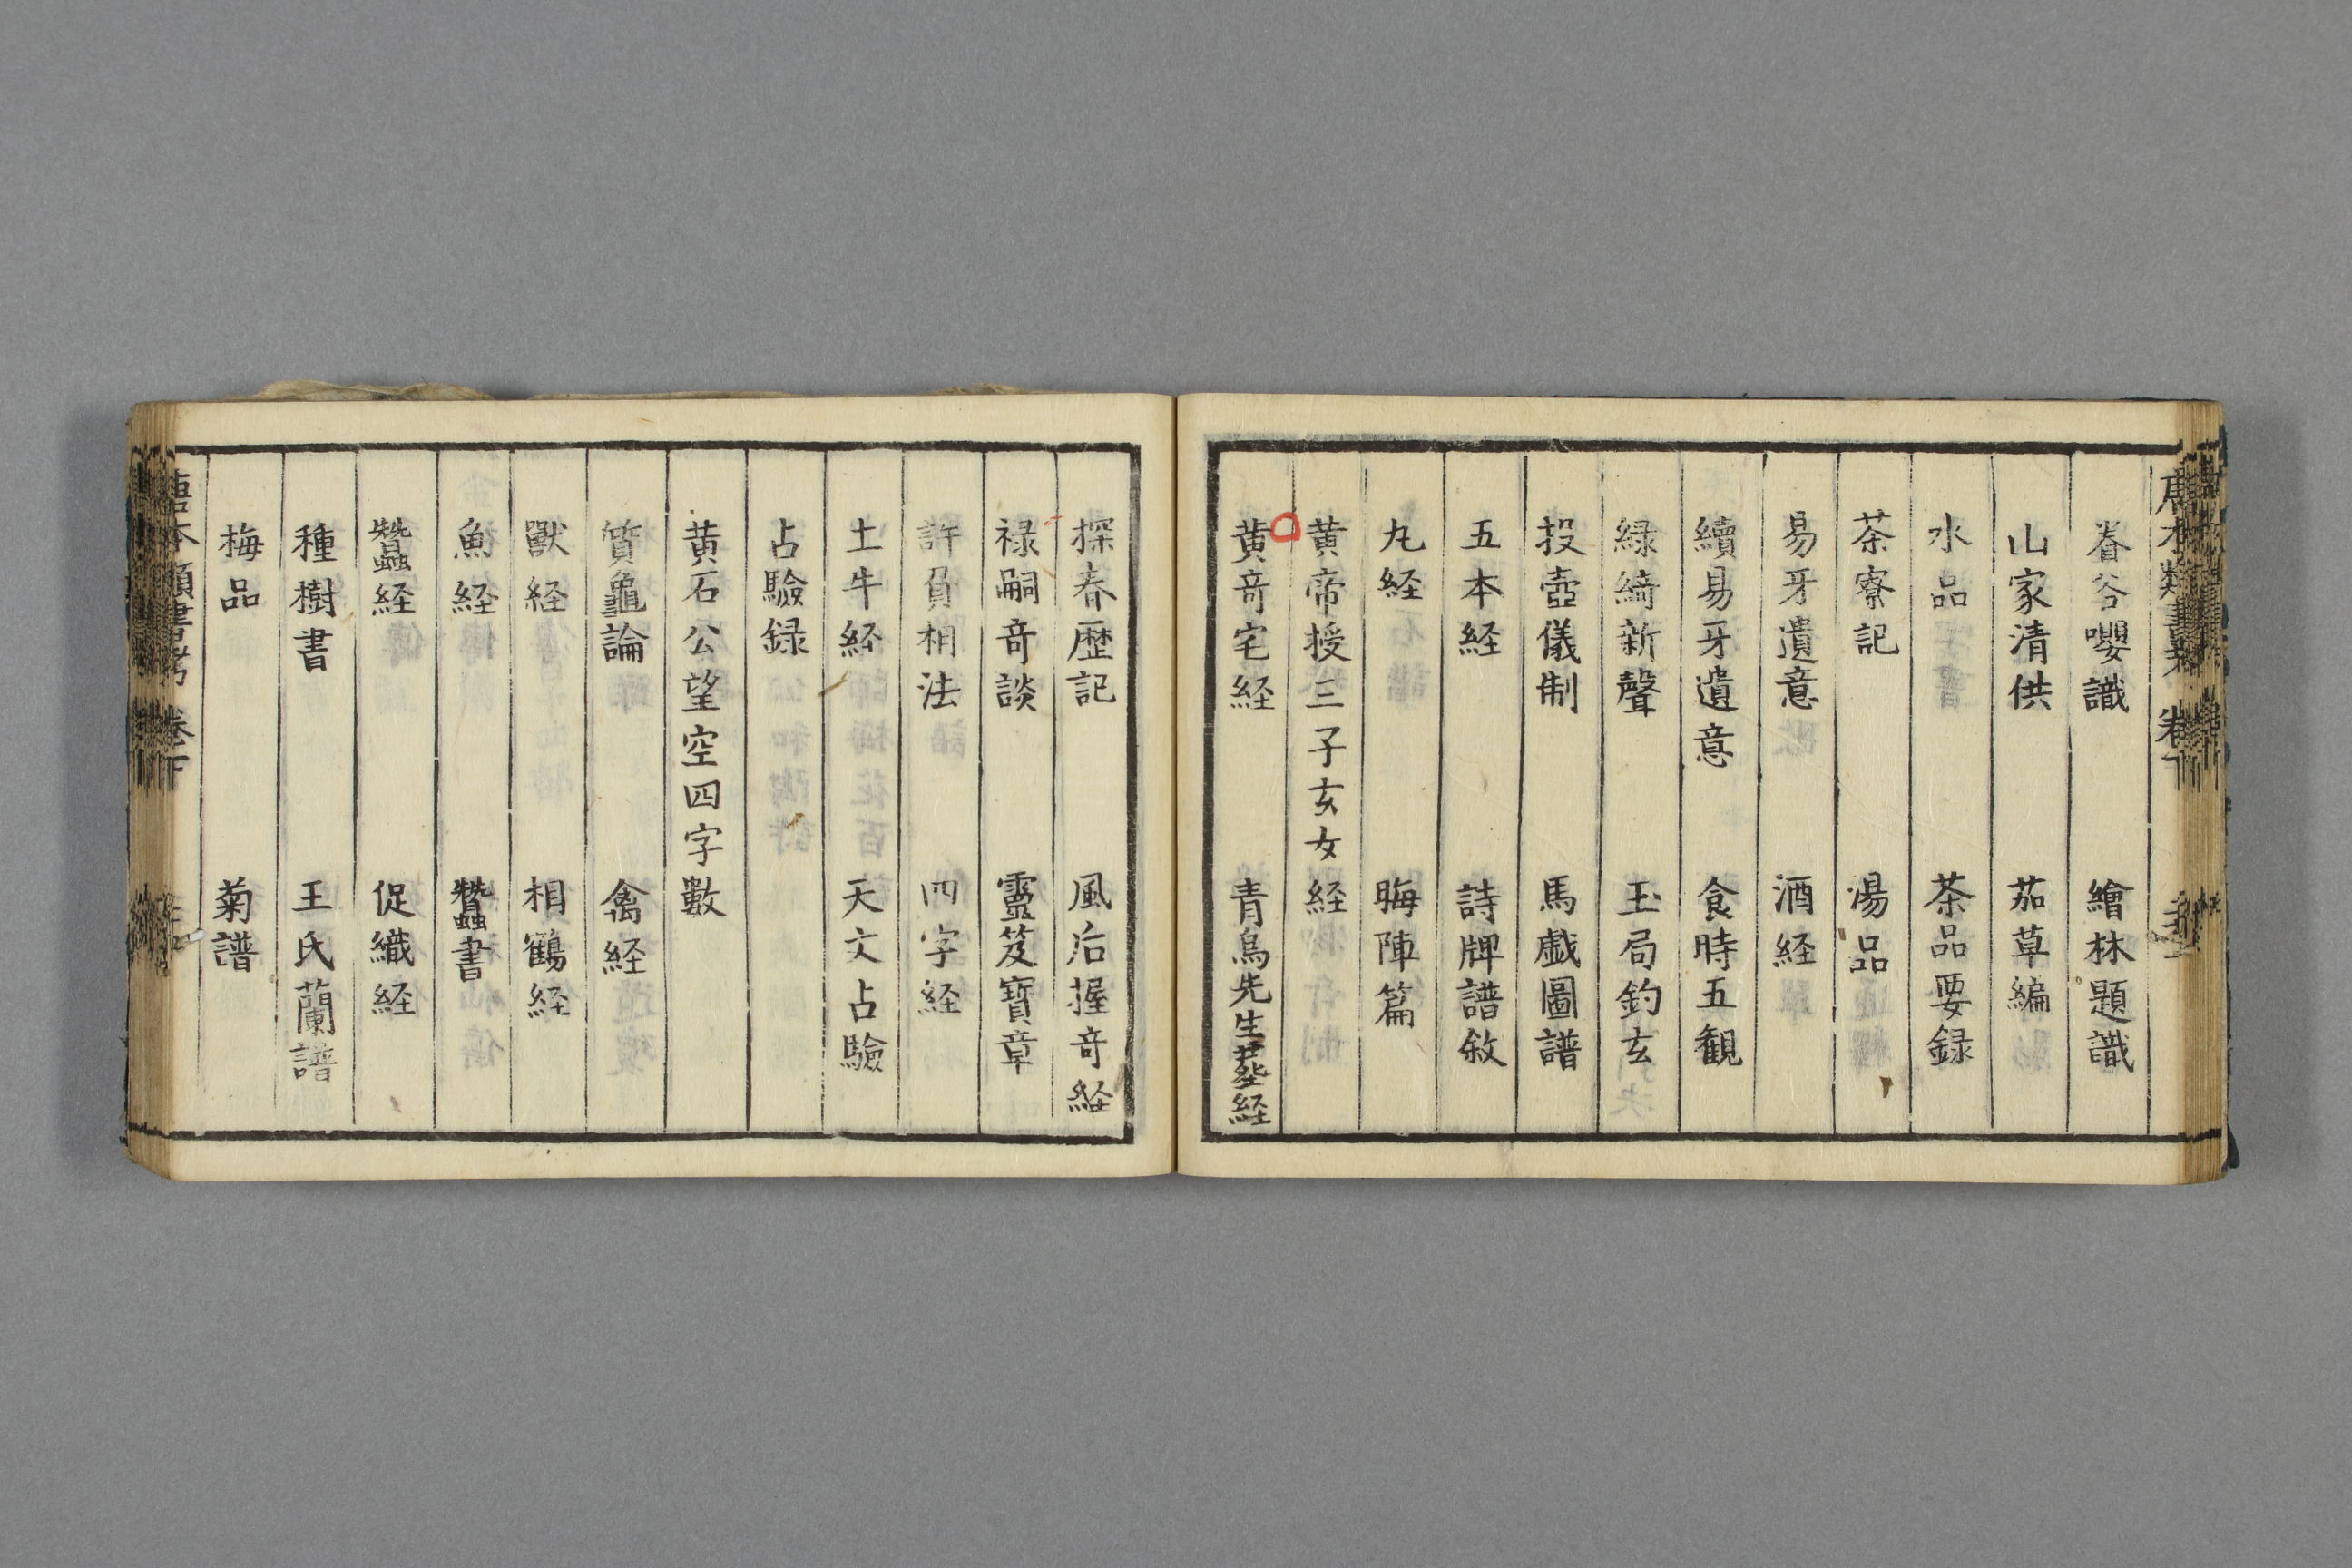 唐本類書考 卷下
眷谷嚶識 繪林題識
山家清供 茹草編
水品 茶品要録
茶寮記 湯品
易牙遺意 酒経
續易牙遺意 食時五観
緑綺新聲 玉局鈎玄
投壺儀制 馬戯圖譜
五本経 詩牌譜敘
丸経 晦陣篇
黄帝授三子玄女経
黄竒宅経 青烏先生葬経
探春歴記 風后握竒経
禄嗣竒談 靈笈寶章
許負相法 四字経
土牛経 天文占驗
占驗録
黄石公望空四字數
質龜論 禽経
獸経 相鶴経
魚経 蠶書
蠶経 促織経
種樹書 王氏蘭譜
梅品 菊譜
唐本類書考 卷下